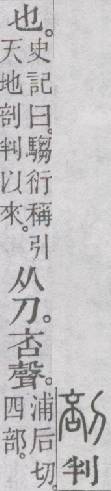 剖判
也。
史記曰。騶衍稱引
天地剖判以來。
从刀。咅聲。
浦后切。
四部。